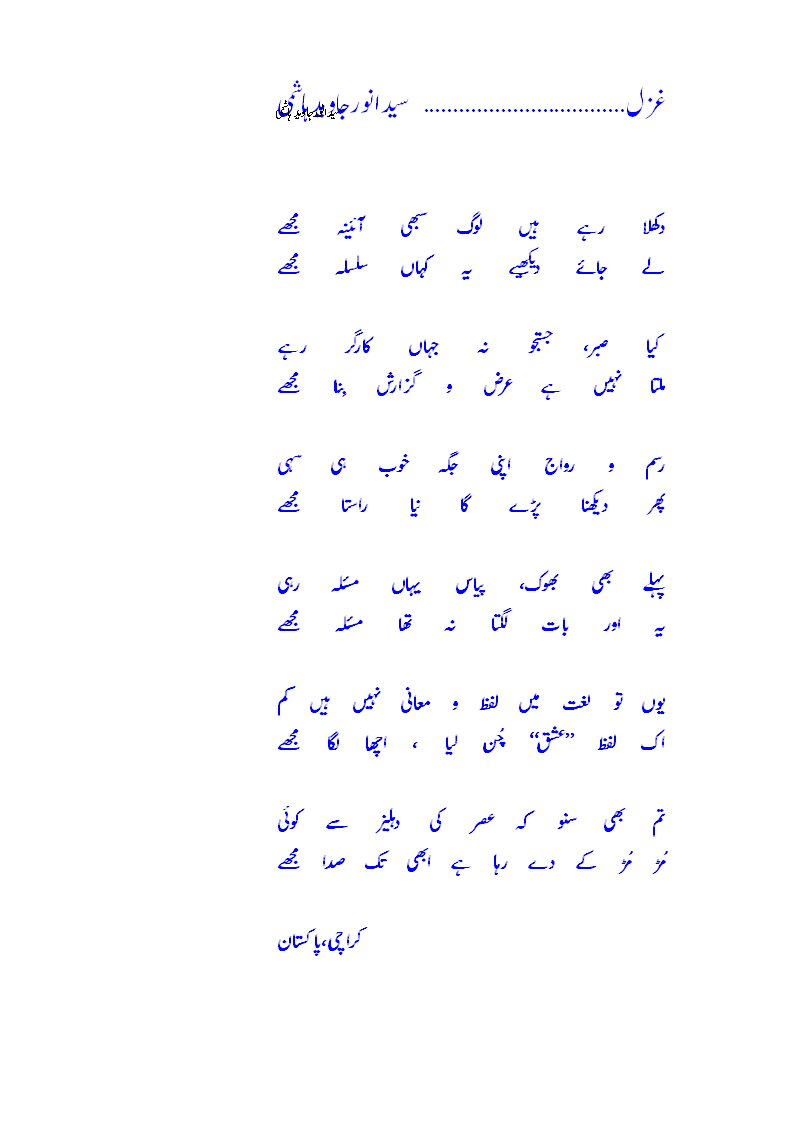 غزل................................... سید انور جاوید ہاشمی
دکھلا رہے ہیں لوگ سبھی آئینہ مجھے
لے جائے دیکھیے یہ کہاں سلسلہ مجھے
کیا صبر، جستجو نہ جہاں کارگر رہے
ملتا نہیں ہے عرض و گزارش بِنا مجھے
رسم و رواج اپنی جگہ خوب ہی سہی
پھر دیکھنا پڑے گا نیا راستا مجھے
پہلے بھی بھوک، پیاس یہاں مسئلہ رہی
یہ اور بات لگتا نہ تھا مسئلہ مجھے
یوں تو لغت میں لفظ و معانی نہیں ہیں کم
اک لفظ ’’عشق‘‘ چُن لیا ، اچھا لگا مجھے
تم بھی سنو کہ عصر کی دہلیز سے کوئی
مُڑ مُڑ کے دے رہا ہے ابھی تک صدا مجھے
کراچی،پاکستان